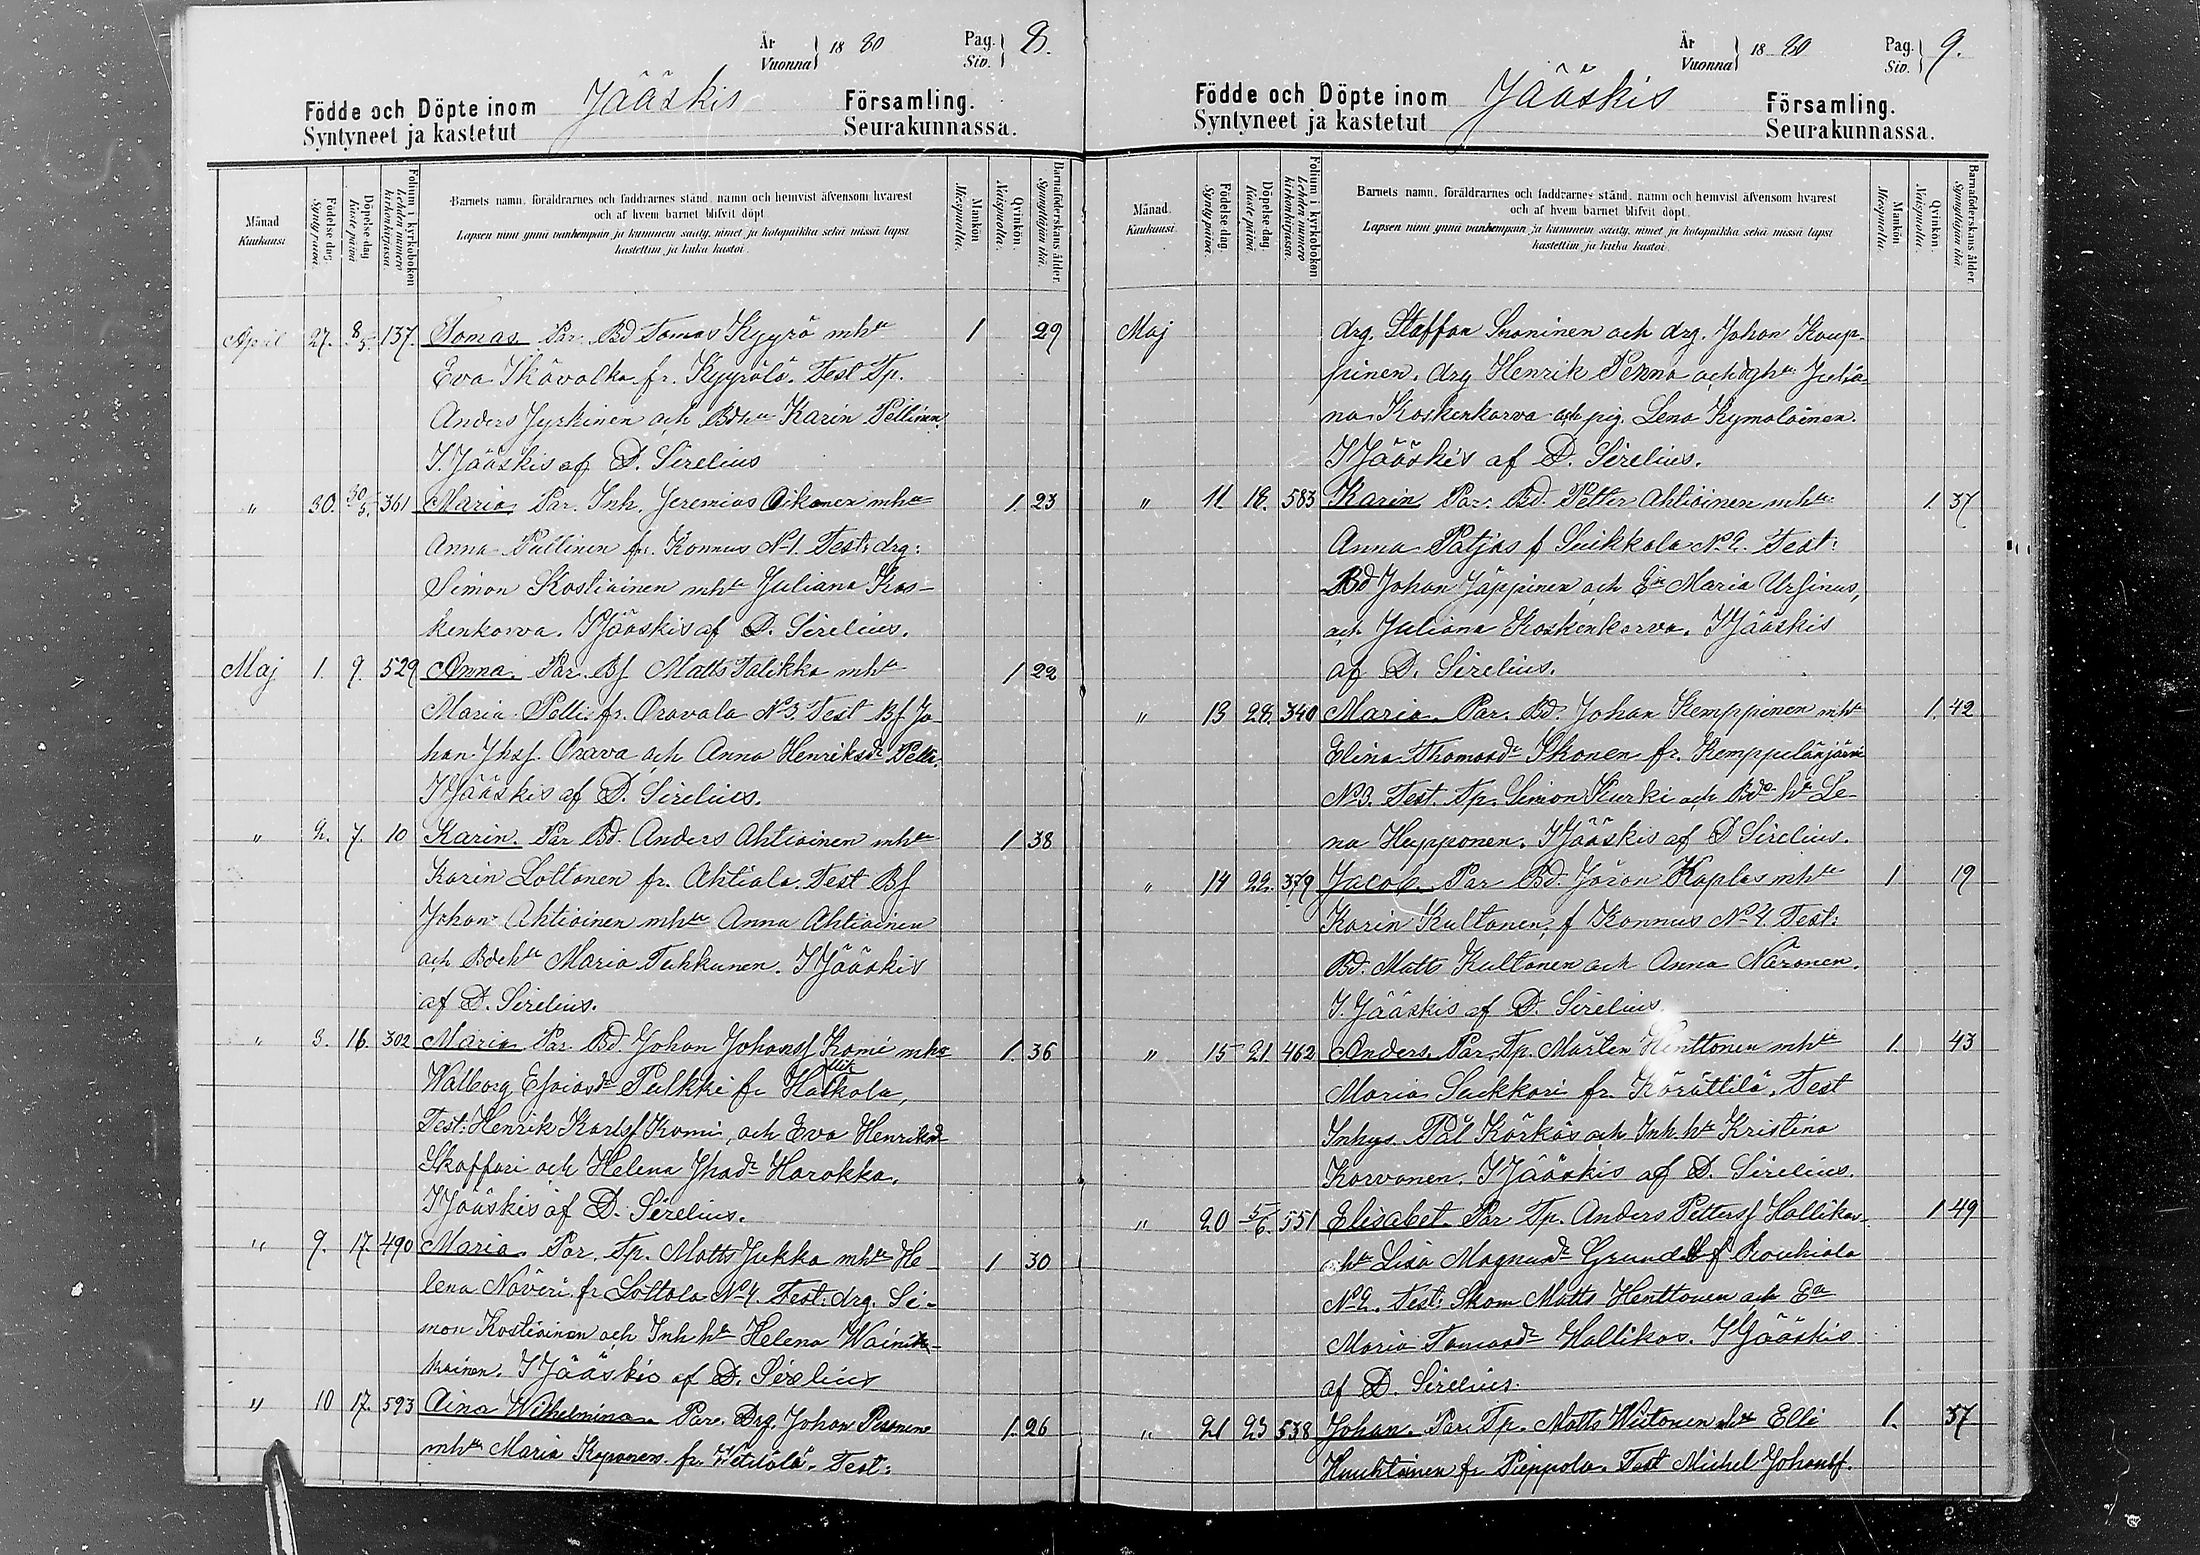 År
Vuonna
1880
Pag.
Siv.
8.
Födde och Döpte inom Jääskis Församling.
Syntyneet ja kastetut Seurakunnassa.
Månad
Kuukausi
Födelse dag.
Syntypäivä.
Döpelse dag
Kastepäivä
Folium i kyrkoboken
Lehden numero kirkonkirjassa
Barnets namn, föräldrarnes och faddrarnes stånd, namn och hemvist äfvensom hvarest
och af hvem barnet blifvit döpt.
Lapsen nimi ynnä vanhempain ja kummein sääty, nimet ja kotopaikka sekä missä lapsi
kastettiin ja kuka kastoi.
Mankön
Miespuolia.
Qvinkön.
Naispuolia.
Barnaföderskans ålder
Synnyttäjän ikä.
April 27. 8/5. 137. Tomas Par. Bd Tomas Kyyrö mhu 1 29
Eva Ikävalko fr. Kyyrölä. Test Tp.
Anders Jyrkinen och Bdhu Karin Pellinen
I Jääskis af D. Sirelius
" 30. 30/5. 361 Maria Par. Inh. Jeremias Oikonen mhu 1. 23
Anna Pullinen fr. Konnus No 1. Test: drg:
Simon Kostiainen mhu Juliana Kos-
kenkorva. I Jääskis af D. Sirelius.
Maj 1. 9. 529 Anna. Par. Bf Matts Talikka mhu 1 22
Maria Pelli fr. Oravala No 3. Test Bf Jo-
han Jhsf. Orava och Anna Henriksdr
I Jääskis af D. Sirelius.
" 2. 7. 10 Karin. Par Bd. Anders Ahtiainen mhu 1 38
Karin Lottonen fr. Ahtiala. Test Bf
Johan Ahtiainen mhu Anna Ahtiainen
och Bdehu Maria Tuhkunen. I Jääskis
af D. Sirelius.
" 3. 16. 302 Maria Par. Bd. Johan Johansf Komi mhu 1. 36
Walborg Esaiasdr Pulkki fr
Test: Henrik Karlsf Komi, och Eva Henriksdr
Skaffari och Helena Jhsdr Harokka.
I Jääskis af D. Sirelius.
" 9. 17. 490 Maria. Par. Tp. Matts Jukka mhu He- 1 30
lena Näveri fr Lottola No 4. Test: drg. Si-
mon Kostiainen och Inh hu Helena
I Jääskis af D. Sirelius
" 10 17. 593 Aina Wilhelmina. Par. Drg. Johan 1. 26
mhu Maria fr. Test:
År
Vuonna
1880
Pag.
Siv.
9.
Födde och Döpte inom Jääskis Församling.
Syntyneet ja kastetut Seurakunnassa.
Månad.
Kuukausi
Födelse dag.
Syntypäivä.
Döpelse dag.
Kastepäivä.
Folium i kyrkoboken
Lehden numero kirkonkirjassa.
Barnets namn, föräldrarnes och faddrarnes stånd, namn och hemvist äfvensom hvarest
och af hvem barnet blifvit döpt.
Lapsen nimi ynnä vanhempain ja kummein sääty, nimet ja kotopaikka sekä missä lapsi
kastettiin ja kuka kastoi.
Mankön
Miespuolia.
Qvinkön.
Naispuolia.
Barnaföderskans ålder
Synnyttäjän ikä.
Maj drg. Staffan Suoninen och drg. Johan Koup-
pinen. drg Henrik Penna och dghu Julia-
na Koskenkorva och pig. Lena Kymäläinen.
I Jääskis af D. Sirelius.
" 11. 18. 583 Karin Par. Bd. Petter Ahtiainen mhu 1. 37
Anna Patjas f Suikkala No 2. Test:
Bd Johan Jäppinen och Ea Maria Ursinus,
och Juliana Koskenkorva. I Jääskis
af D. Sirelius.
" 13 28. 340 Maria. Par. Bd. Johan Kemppinen mhu 1. 42
Elina Thomasdr Ikonen fr. Kemppilänjärvi
No 3. Test. Tp. Simon Kurki och Bde hu Le-
na Hupponen. I Jääskis af D Sirelius.
" 14 22. 379 Jacob. Par Bd. Jöran Kaplas mhu 1 19
Karin Kultanen f Konnus No 4. Test:
Bd. Matts Kultanen och Anna Näränen.
I Jääskis af D. Sirelius.
" 15 21 462 Anders. Par. Tp. Mårten Henttonen mhu 1. 43
Maria Sukkari fr. Kärättilä. Test
Inhys Pål Kärkäs och Inh. hu Kristina
Korvonen. I Jääskis af D. Sirelius.
" 20 5/6. 551 Elisabet. Par Tp. Anders Pettersf Hallikas 1 49
hu Lisa Magnusdr f Rouhiala
No 2. Test: Skom Matts Henttonen och Ea
Maria Tomasdr Hallikas. I Jääskis
af D. Sirelius.
" 21 23 538 Johan. Par. Tp. Matts hu Elli 1. 37
Huuhtainen fr Pieppola. Test Michel Johansf.